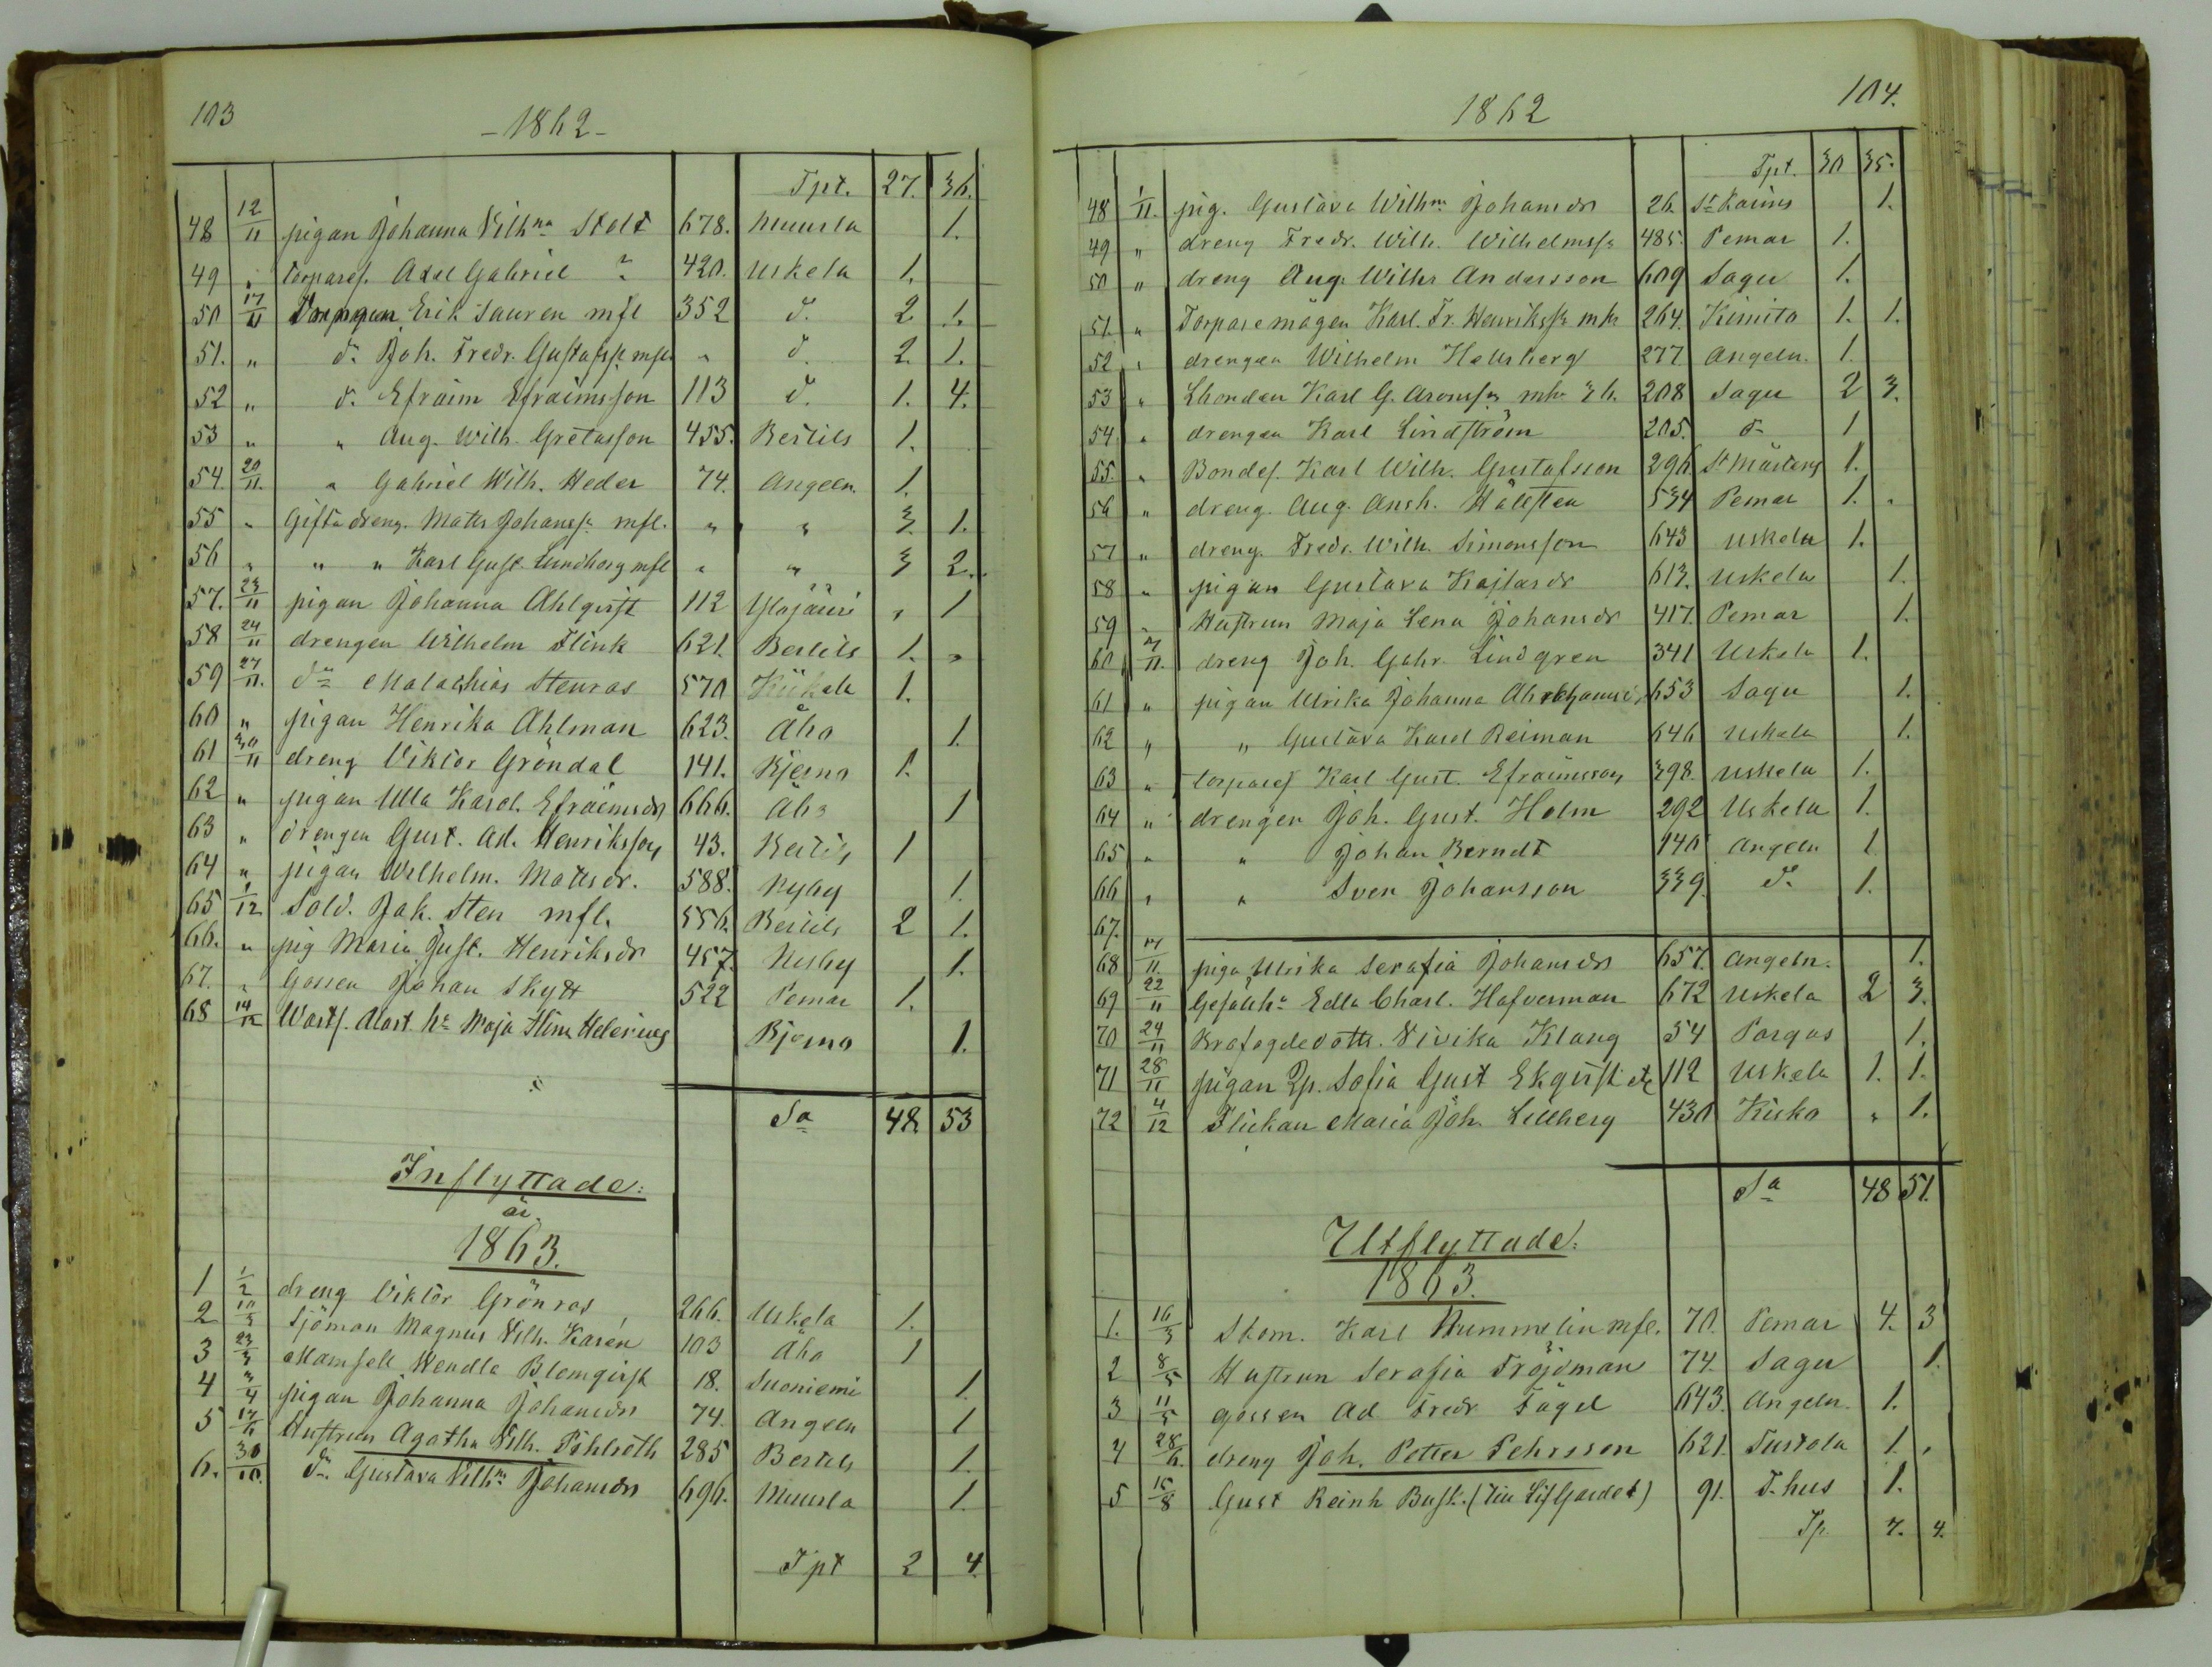 103
-1862-
Tpt. 27. 36.
48 12/11 pigan Johanna Vilhna Stolt 678. Muurla 1.
49 " torpares. Axel Gabriel 420. Uskela 1.
50 17/11 Drengen Erik Sauren mfl 352 d. 2 1.
51. " d. Joh. Fredr. Gustafss. mfl " d. 2. 1.
52 " d. Efraim Efraimsson 113 d. 1. 4.
53 " " Aug. Wilh. Gretasson 455. Bertils 1.
54. 20/11. " Gabriel Wilh. Heder 74. Angeln. 1.
55 " Gifta dreng. Matts Johanss. mfl. " " 3. 1.
56 " " " Karl Gust. Lundberg mfl " " 3 2.
57. 23/11 pigan Johanna Ahlqvist 112 Ylöjärvi " 1
58 24/11 drengen Wilhelm Flink 621. Bertils 1. "
59 27/11. d:o Malachias Stenros 570 Kiikala 1.
60 " pigan Henrika Ahlman 623. Åbo 1.
61 30/11 dreng Viktor Gröndal 141. Bjerno 1.
62 " pigan Ulla Karol. Efraimsdr 666. Åbo 1
63 " drengen Gust. Ad. Henriksson 43. Bertils 1
64 " pigan Wilhelm. Mattsdr. 588. Nyby 1.
65 1/12 Sold. Jak. Sten mfl. 556. Bertils 2 1.
66. " pig Maria Gust. Henriksdr 457. Nyby 1.
67. " Gossen Johan Skytt 522 Pemar 1.
68 14/12 Maja Stina Helenius Bjerno 1.
Sa 48. 53
Inflyttade:
år
1863.
1 1/2 dreng Viktor Grönros 266. Uskela 1.
2 10/3 Sjöman Magnus Vilh. Karén 103 Åbo 1
3 23/3 Mamsell Wendla Blomqvist 18. Suoniemi 1.
4 3/4 pigan Johanna Johansdr 74. Angeln 1
5 17/6 Hustrun Agatha Vilh. Pohlroth 285 Bertils 1.
6. 30/10. d:o Gustava Vilh:a Johansdr 696. Muurla 1.
Tpt 2 4.
1862
104.
Tpt. 30 35.
48 1/11. pig. Gustava Wilh:na Johansdr 26. St Karins 1.
49 " dreng Fredr. Wilh. Wilhelmss. 485. Pemar 1.
50 " dreng Aug. Wilhr Andersson 609 Sagu 1.
51. " Torparemågen Karl. Fr. Henrikss. mh 264. Kimito 1. 1.
52 " drengen Wilhelm Hellsberg 277 Angeln. 1.
53 " Lbonden Karl G. Aronss. mh. 3 b. 208 Sagu 2 3.
54 " drengen Karl Lindström 205. d:o 1
55. " Bondes. Karl Wilh. Gustafsson 296 St Mårtens 1.
56 " dreng. Aug. Ansh. Hällsten 534 Pemar 1. "
57 " dreng. Fredr. Wilh. Simonsson 643 Uskela 1.
58 " pigan Gustava Kajlasdr 613. Uskela 1.
59 " Hustrun Maja Lena Johansdr 417. Pemar 1.
60 7/11. dreng Joh. Gabr. Lindgren 341 Uskela 1.
61 " pigan Ulrika Johanna 653 Sagu 1.
62 " " Gustava Karol Reiman 646 Uskela 1.
63 " torpares Karl Gust. Efraimsson 398. Uskela 1.
64 " drengen Joh. Gust. Holm 292 Uskela 1.
65 " " Johan Berndt 140 Angeln 1
66 " " Sven Johansson 339. d:o 1.
67.
68 17/11. piga Ulrika Serafia Johansdr 657. Angeln. 1.
69 22/11 Edla Charl. Hafverman 672 Uskela 2 3.
70 24/11 Vivika Klang 54 Pargas 1.
71 28/11 pigan Sofia Gust Ekqvist etc 112 Uskela 1. 1.
72 4/12 Flickan Maria Joh. Lillberg 430 Kisko " 1.
Sa 48 51.
Utflyttade:
1863.
1. 16/3 Skom. Karl Hummelin mfl. 70. Pemar 4. 3
2 8/5 Hustrun Serafia Fröjdman 74. Sagu 1.
3 11/5 gossen Ad Fredr Fågel 643. Angeln. 1.
4 28/6. dreng Joh. Petter Pehrsson 621. Tustola 1. "
5 15/8 Gust Reinh Busk. (Till Lifgardet) 91. T.hus 1.
Tp 7. 4.